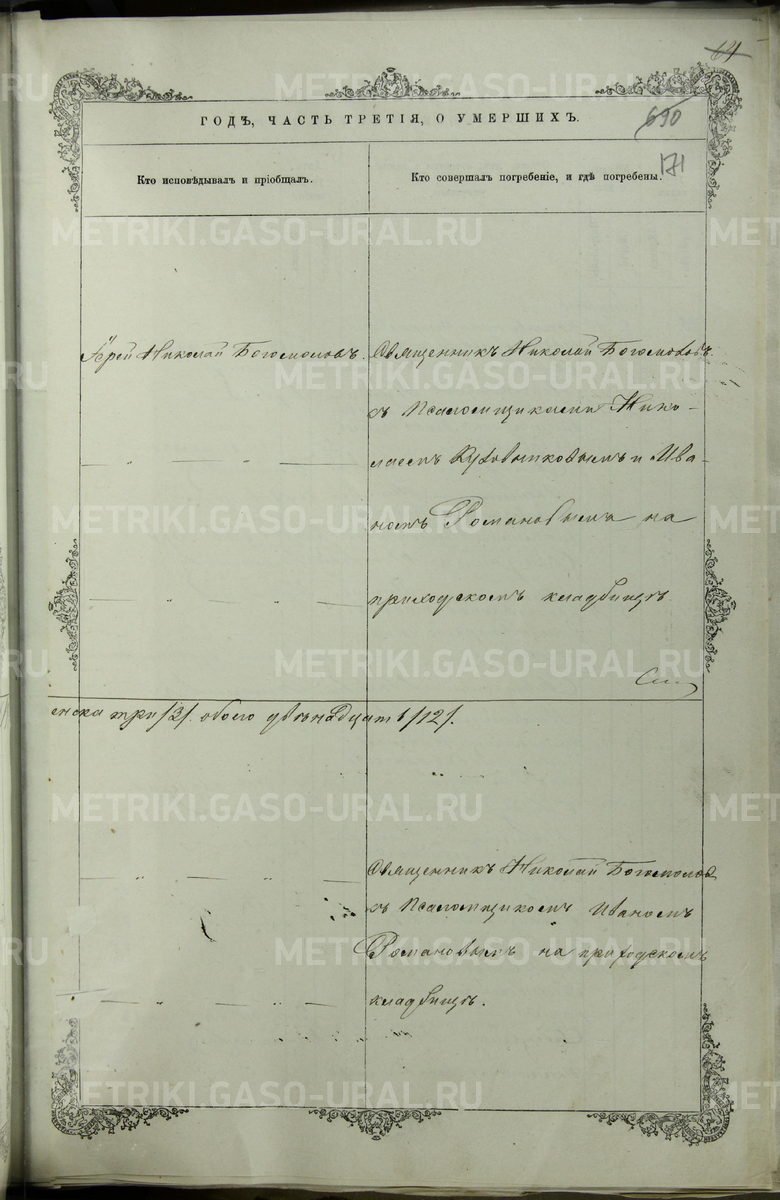 64
ГОДЪ, ЧАСТЬ ТРЕТІЯ, О УМЕРШИХЪ.
690
171
Кто исповѣдывалъ и пріобщалъ.
Кто совершалъ погребеніе, и гдѣ погребены.
Іерей Николай Богомоловъ.
Священникъ Николай Богомоловъ
съ Псаломщиками Нико-
лаемъ и Ива-
номъ Романовымъ на
приходскомъ кладбищѣ
енска три /3/. обоего двѣнадцать /12/.
Священникъ Николай Богомоловъ
съ Псаломщикомъ Иваномъ
Романовымъ на приходскомъ
кладбищѣ.
METRIKI.GASO-URAL.RU